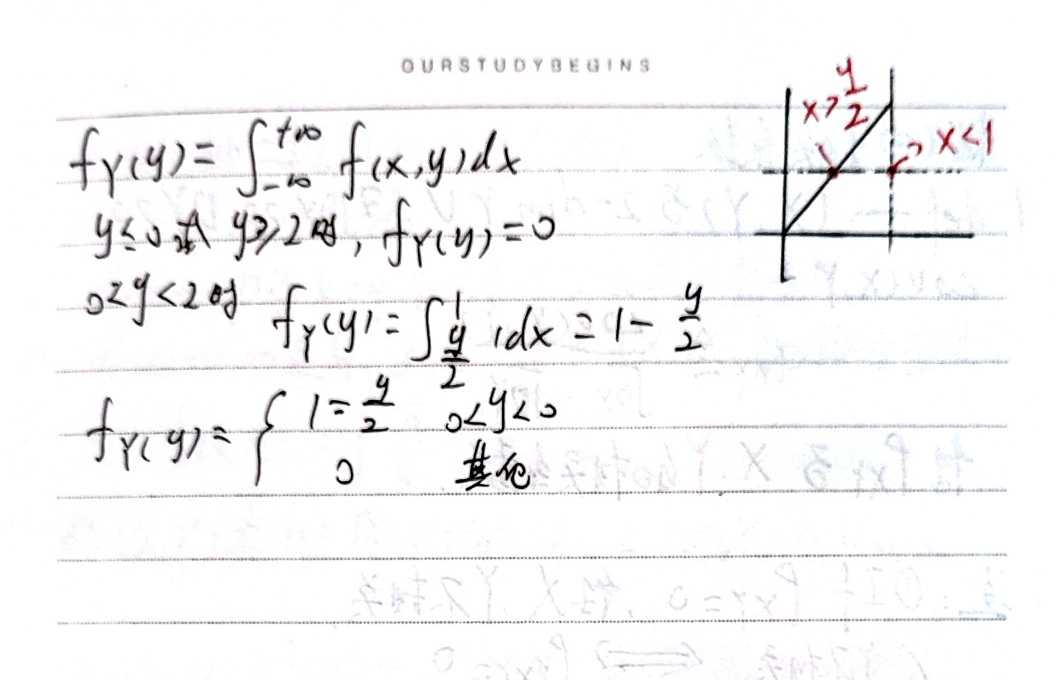 OURSTUDYBEGINS
x>y/2
x<1
f_Y(y)=∫_{-∞}^{+∞} f(x,y)dx
y≤0或 y≥2时, f_Y(y)=0
0<y<2时 f_Y(y)=∫_{y/2}^{1} 1dx=1-y/2
f_Y(y)={ 1=y/2 0<y<0
0 其他